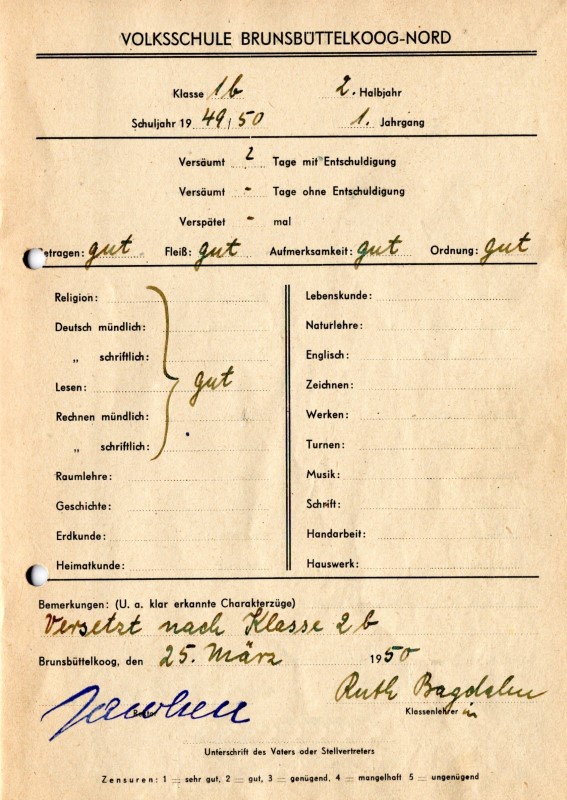 VOLKSSCHULE BRUNSBÜTTELKOOG-NORD
Klasse 1b 2. Halbjahr
Schuljahr 19 49/50 1. Jahrgang
Versäumt 2 Tage mit Entschuldigung
Versäumt - Tage ohne Entschuldigung
Verspätet - mal
etragen: gut Fleiß: gut Aufmerksamkeit: gut Ordnung: gut
Religion:
Deutsch mündlich:
„ schriftlich:
Lesen: gut
Rechnen mündlich:
„ schriftlich:
Raumlehre:
Geschichte:
Erdkunde:
Heimatkunde:
Lebenskunde:
Naturlehre:
Englisch:
Zeichnen:
Werken:
Turnen:
Musik:
Schrift:
Handarbeit:
Hauswerk:
Bemerkungen: (U. a. klar erkannte Charakterzüge)
Versetzt nach Klasse 2b
Brunsbüttelkoog, den 25. März 1950
Ruth Bagdahn
Klassenlehrer in
Unterschrift des Vaters oder Stellvertreters
Zensuren: 1 = sehr gut, 2 = gut, 3 = genügend, 4 = mangelhaft 5 = ungenügend